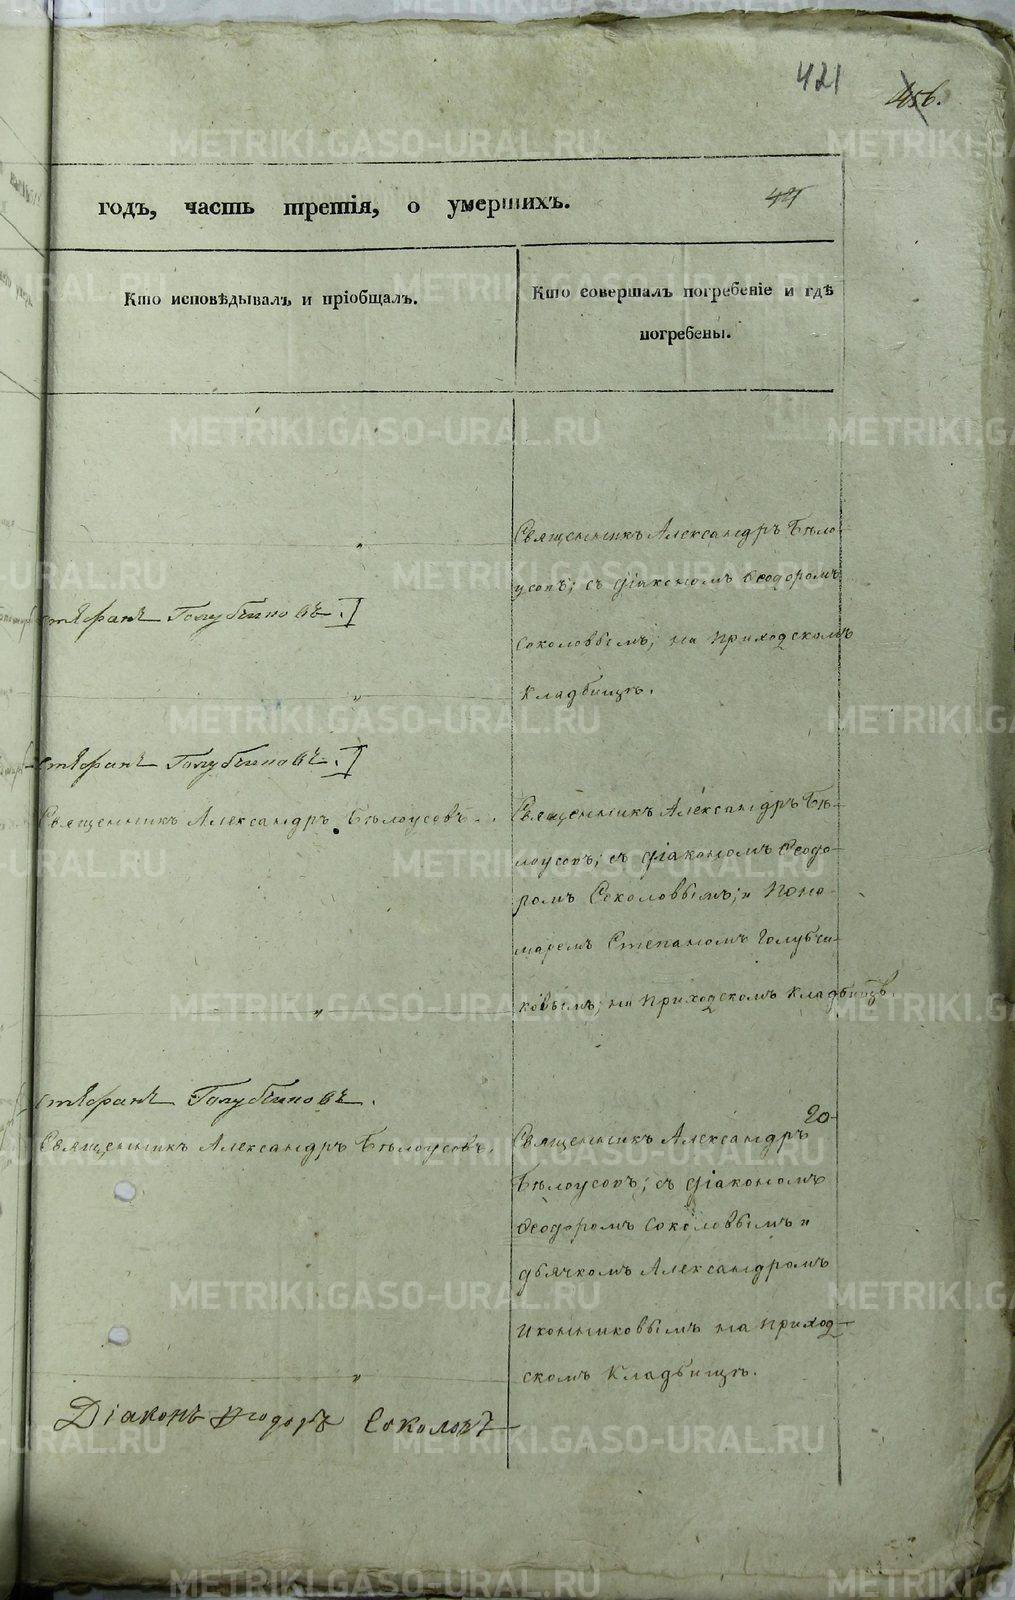 421
456.
годъ, часть третія, о умершихъ.
Кто исповѣдывалъ и пріобщалъ.
Кто совершалъ погребеніе и гдѣ
погребены.
Священникъ Александръ Бѣло-
усовъ; съ діакономъ Ѳеодоромъ
Стефанъ Голубчиковъ.
Соколовымъ; на приходскомъ
кладбищѣ.
Стефанъ Голубчиковъ.
Священникъ Александръ Бѣлоусовъ.
Священникъ Александръ Бѣ-
лоусовъ; съ діакономъ Ѳеодо-
ромъ Соколовымъ; и Поно-
маремъ Степаномъ Голубчи-
ковымъ; на приходскомъ кладбищѣ.
Стефанъ Голубчиковъ.
Священникъ Александръ Бѣлоусовъ.
Священникъ Александръ
Бѣлоусовъ; съ діакономъ
Ѳеодоромъ Соколовымъ и
дьячкомъ Александромъ
Иконниковымъ на приход-
скомъ кладбищѣ.
Діаконъ Ѳеодоръ Соколовъ
METRIKI.GASO-URAL.RU